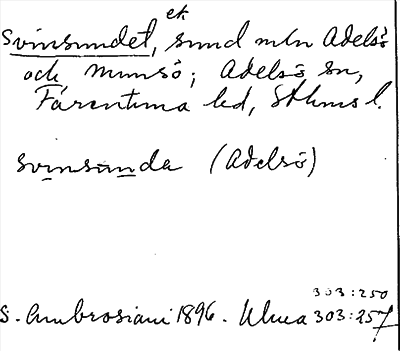 ek
Svinsundet, sund mln Adelsö
och Munsö; Adelsö sn,
Färentuna hd, Sthms l.
svinsunda (Adelsö)
303:250
S. Ambrosiani 1896. Uluea 303:257